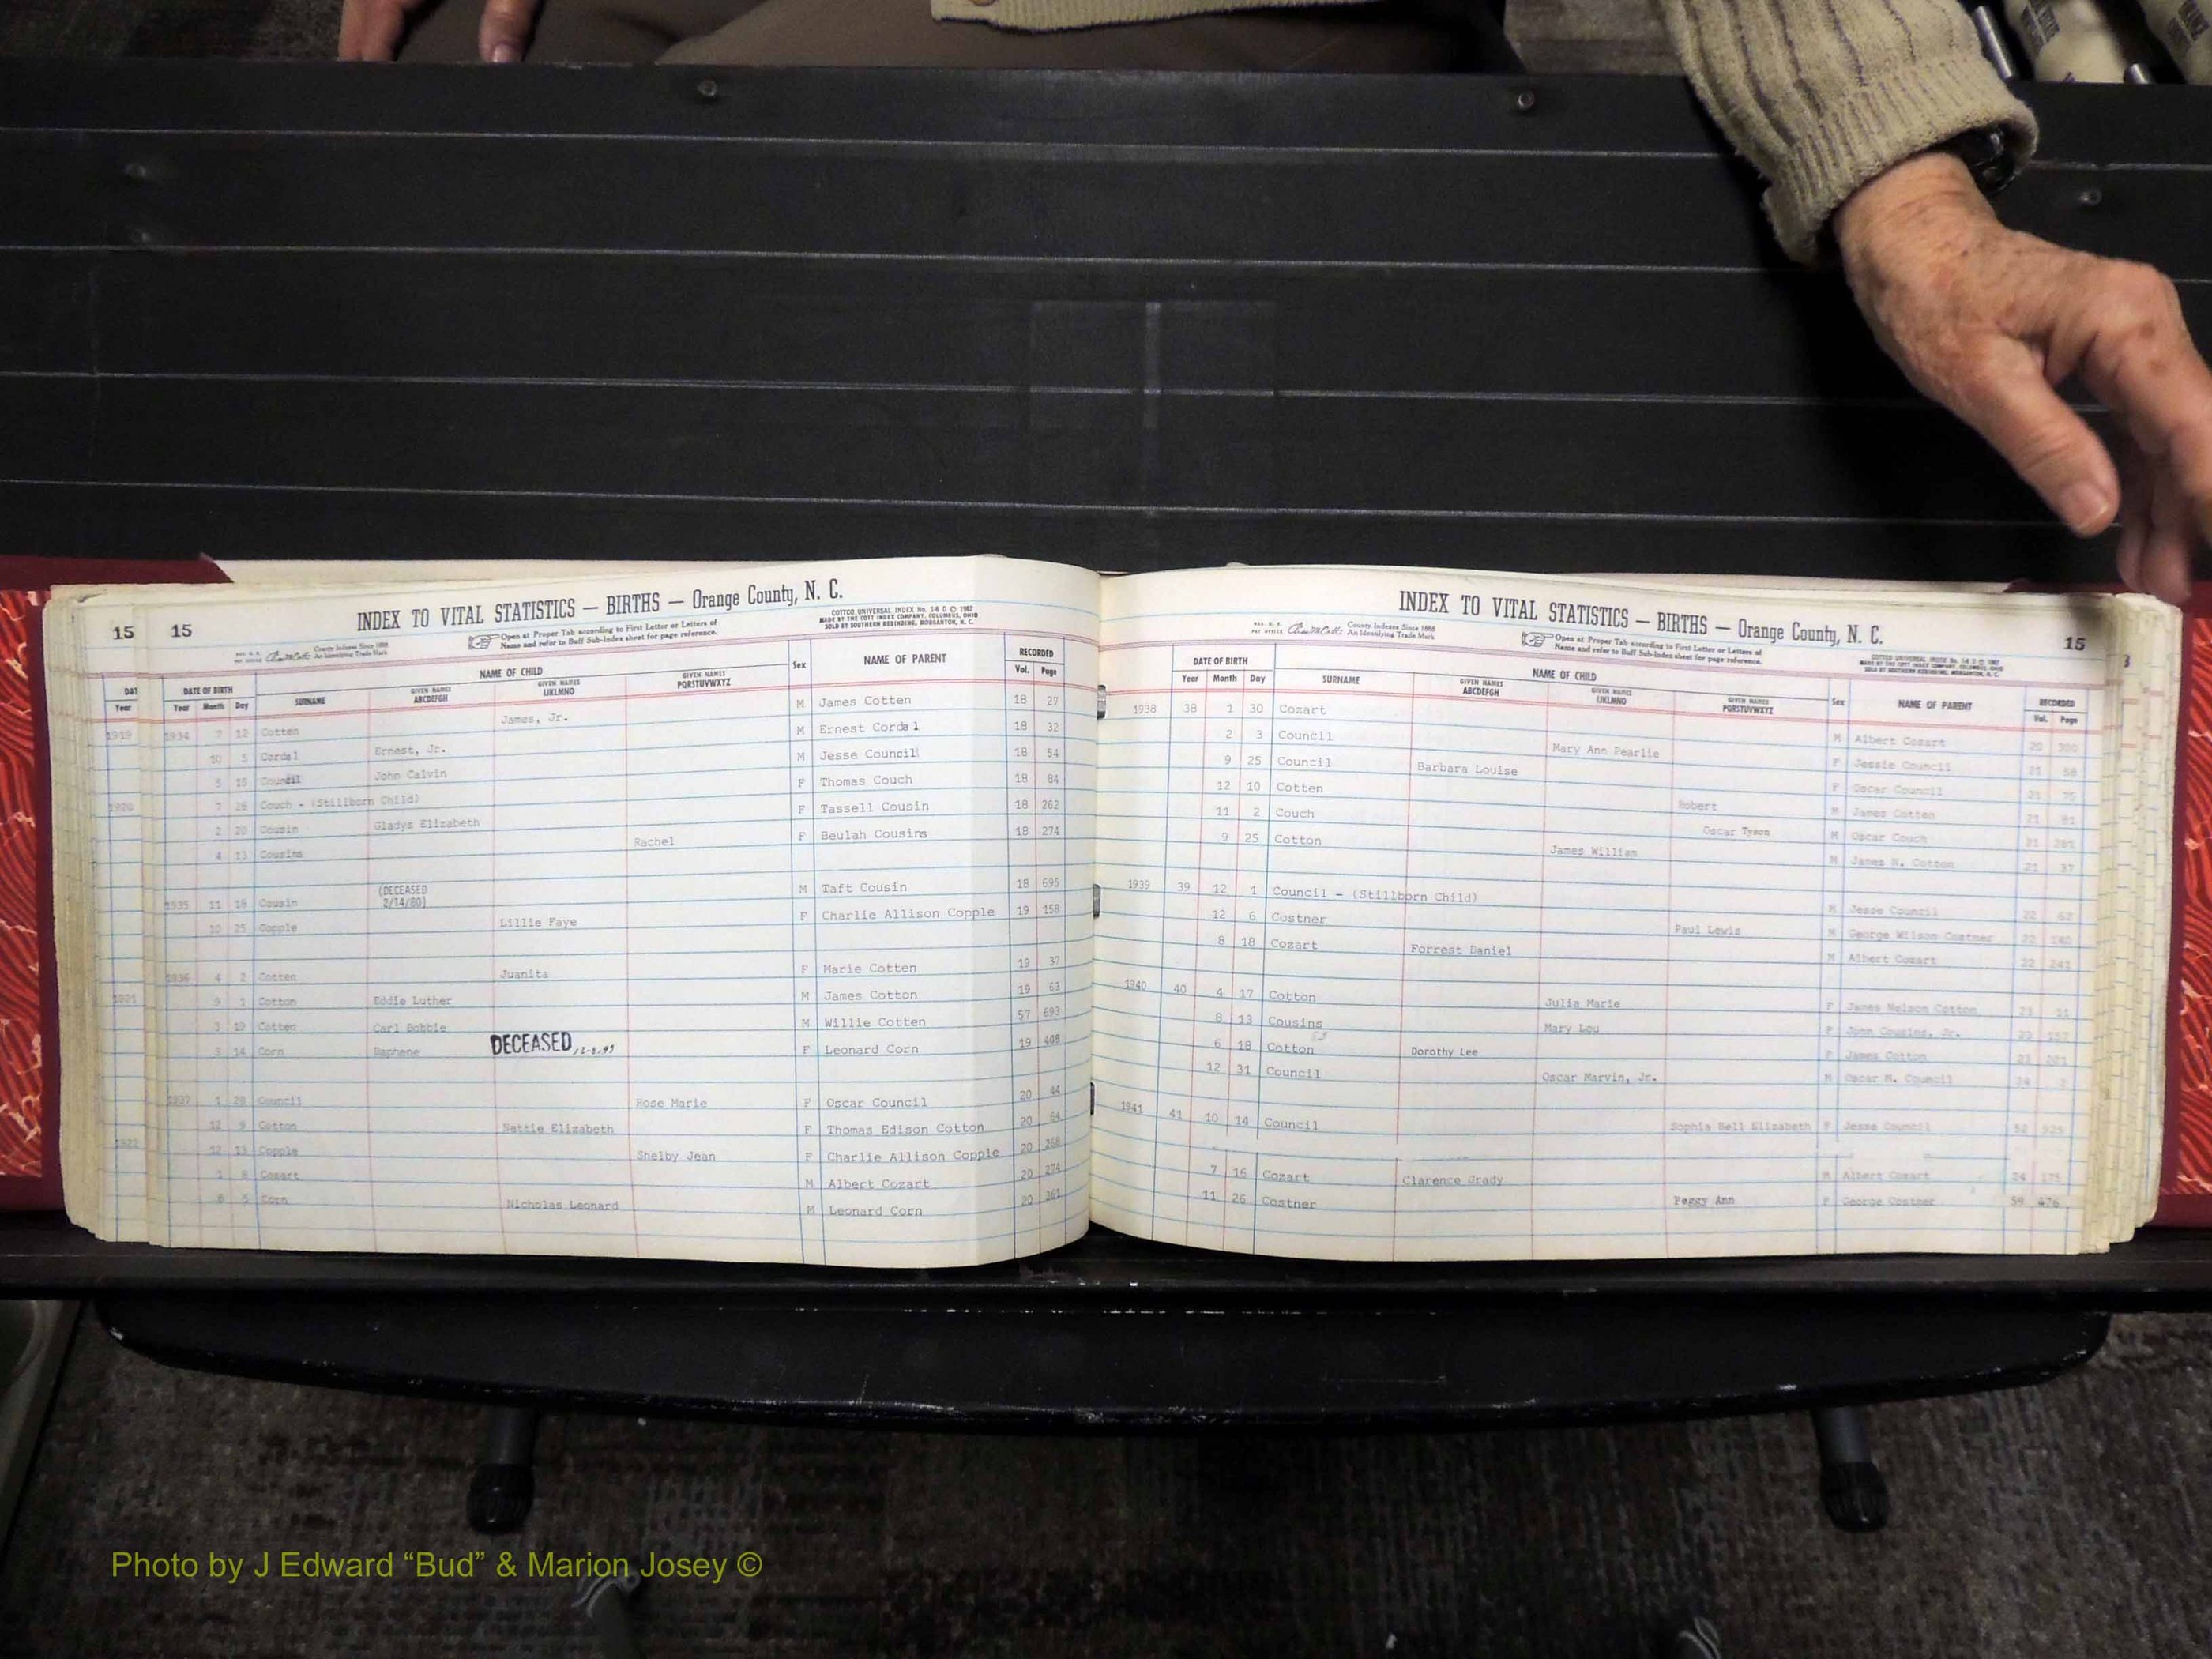 15 15
INDEX TO VITAL STATISTICS — BIRTHS — Orange County, N. C.
COTTCO UNIVERSAL INDEX No. 1-8 D © 1962
MADE BY THE COTT INDEX COMPANY, COLUMBUS, OHIO
SOLD BY SOUTHERN REBINDING, MORGANTON, N. C.
County Indexes Since 1888
An Identifying Trade Mark
Open at Proper Tab according to First Letter or Letters of
Name and refer to Buff Sub-Index sheet for page reference.
DATE OF BIRTH NAME OF CHILD Sex NAME OF PARENT RECORDED
Year Month Day SURNAME GIVEN NAMES ABCDEFGH GIVEN NAMES IJKLMNO GIVEN NAMES PQRSTUVWXYZ Vol. Page
1919 1934 7 12 Cotten James, Jr. M James Cotten 18 27
10 5 Cordal Ernest, Jr. M Ernest Cordal 18 32
5 15 Council John Calvin M Jesse Council 18 54
1920 7 28 Couch - (Stillborn Child) F Thomas Couch 18 84
2 20 Cousin Gladys Elizabeth F Tassell Cousin 18 262
4 13 Cousins Rachel F Beulah Cousins 18 274
1935 11 18 Cousin (DECEASED 2/14/80) M Taft Cousin 18 695
10 25 Copple Lillie Faye F Charlie Allison Copple 19 158
1936 4 2 Cotten Juanita F Marie Cotten 19 37
1921 9 1 Cotton Eddie Luther M James Cotton 19 63
3 19 Cotten Carl Bobbie M Willie Cotten 57 693
3 14 Corn Daphene DECEASED F Leonard Corn 19 408
1937 1 28 Council Rose Marie F Oscar Council 20 44
12 9 Cotton Nettie Elizabeth F Thomas Edison Cotton 20 64
1922 12 13 Copple Shelby Jean F Charlie Allison Copple 20 268
1 8 Cozart M Albert Cozart 20 274
8 5 Corn Nicholas Leonard M Leonard Corn 20 361
INDEX TO VITAL STATISTICS — BIRTHS — Orange County, N. C.
15
County Indexes Since 1888
An Identifying Trade Mark
Open at Proper Tab according to First Letter or Letters of
Name and refer to Buff Sub-Index sheet for page reference.
COTTCO UNIVERSAL INDEX No. 1-8 D © 1962
MADE BY THE COTT INDEX COMPANY, COLUMBUS, OHIO
SOLD BY SOUTHERN REBINDING, MORGANTON, N. C.
DATE OF BIRTH NAME OF CHILD Sex NAME OF PARENT RECORDED
Year Month Day SURNAME GIVEN NAMES ABCDEFGH GIVEN NAMES IJKLMNO GIVEN NAMES PQRSTUVWXYZ Vol. Page
1938 38 1 30 Cozart M Albert Cozart 20 380
2 3 Council Mary Ann Pearlie F Jessie Council 21 58
9 25 Council Barbara Louise F Oscar Council 21 75
12 10 Cotten Robert M James Cotten 21 81
11 2 Couch Oscar Tyson M Oscar Couch 21 281
9 25 Cotton James William M James N. Cotton 21 37
1939 39 12 1 Council - (Stillborn Child) M Jesse Council 22 62
12 6 Costner Paul Lewis M George Wilson Costner 22 140
8 18 Cozart Forrest Daniel M Albert Cozart 22 241
1940 40 4 17 Cotton Julia Marie F James Nelson Cotton 23 31
8 13 Cousins Mary Lou F John Cousins, Jr. 23 157
6 18 Cotton Dorothy Lee F James Cotton 23 201
12 31 Council Oscar Marvin, Jr. M Oscar M. Council 24
1941 41 10 14 Council Sophia Bell Elizabeth F Jesse Council 52 925
7 16 Cozart Clarence Grady M Albert Cozart 24 175
11 26 Costner Peggy Ann F George Costner 59 476
Photo by J Edward “Bud” & Marion Josey ©